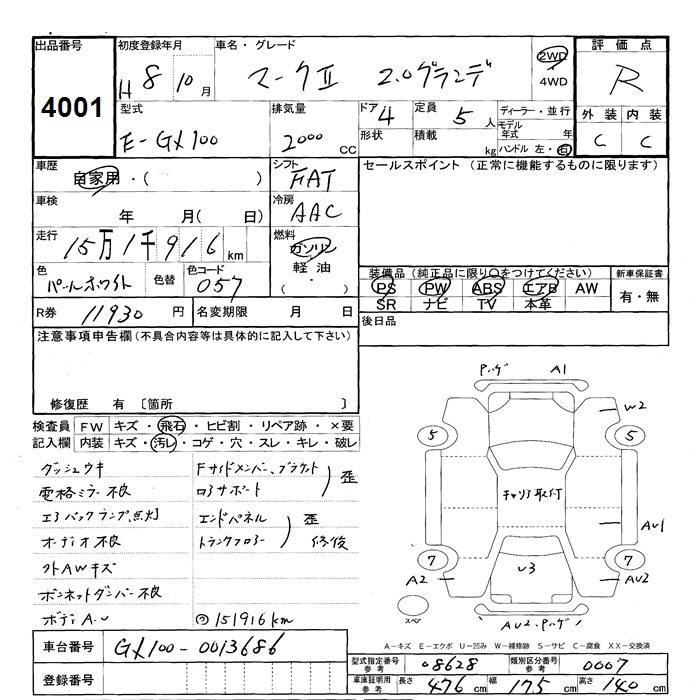 出品番号
4001
初度登録年月
H 8 10 月
車名・グレード
マークⅡ 2.0グランデ
2WD
4WD
評価点
R
型式
E-GX100
排気量
2000 CC
ドア 4
形状
定員 5 人
積載 kg
ディーラー・並行
モデル年式 年
ハンドル 左・右
外装 内装
C C
車歴
自家用・( )
シフト
FAT
セールスポイント (正常に機能するものに限ります)
車検
年 月( 日)
冷房
AAC
走行
15万1千916 km
燃料
ガソリン
軽油
・
色
パールホワイト
色替
色コード
057
装備品 (純正品に限り○をつけてください)
PS PW ABS エアB AW
SR ナビ TV 本革
新車保証書
有・無
R券 11930 円
名変期限 月 日
後日品
注意事項申告欄 (不具合内容等は具体的に記入して下さい)
修復歴 有 〔箇所 〕
検査員 FW キズ・飛石・ヒビ割・リペア跡・×要
記入欄 内装 キズ・汚レ・コゲ・穴・スレ・キレ・破レ
ダッシュウキ
電格ミラー不良
エアバックランプ点灯
オーディオ不良
外AWキズ
ボンネットダンパー不良
ボディA.U
Fサイドメンバー、ブラケット
ロアサポート
歪
エンドパネル
トランクフロアー
歪
修復
151916km
Pハゲ A1
W2
5 5
キャリア取付
AU1
7 7
A2
U3
AU2
スペア
AU2、Pハゲ
A-キズ E-エクボ U-凹み W-補修跡 S-サビ C-腐食 XX-交換済
車台番号 GX100-0013686
登録番号
型式指定番号 参考 08628
類別区分番号 参考 0007
車庫証明用 参考 長さ 476 cm 幅 175 cm 高さ 140 cm